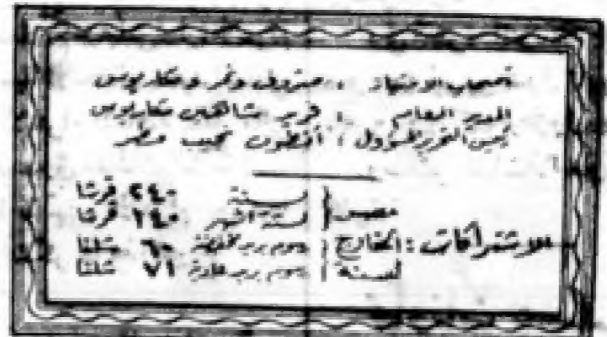 أصحاب الامتياز : صروف ونمر ومكاريوس
المدير العام : فريد شاهين مكاريوس
رئيس التحرير المسؤول : أنطون نجيب مطر
الاشتراكات :
مصر { لسنة ٢٤٠ قرشا
لستة أشهر ١٤٠ قرشا
الخارج لسنة { برسوم بريد مخفضة ٦٠ شلنا
برسوم بريد عادية ٧١ شلنا